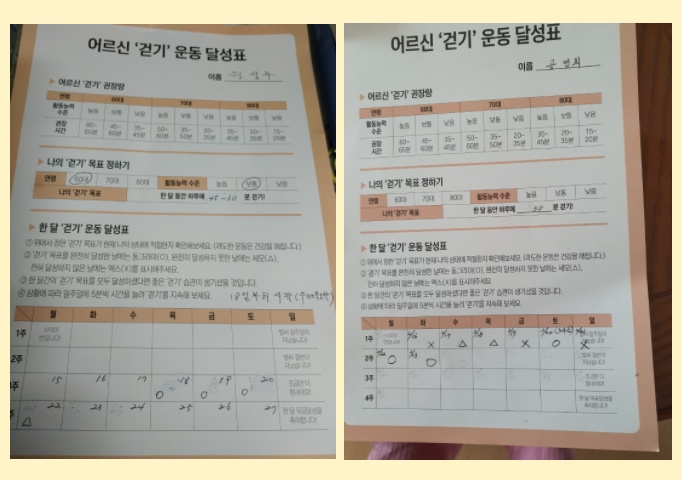 어르신 '걷기' 운동 달성표
이름
▶ 어르신 '걷기' 권장량
연령 60대 70대 80대
활동능력 수준 높음 보통 낮음 높음 보통 낮음 높음 보통 낮음
권장 시간 60~65분 45~60분 35~45분 50~50분 35~50분 20~35분 35~45분 20~35분 15~20분
▶ 나의 '걷기' 목표 정하기
연령 60대 70대 80대 활동능력 수준 높음 보통 낮음
나의 '걷기' 목표 한 달 동안 하루에 45~60 분 걷기!
▶ 한 달 '걷기' 운동 달성표
① 위에서 정한 '걷기' 목표가 현재 나의 상태에 적절한지 확인해보세요. (과도한 운동은 건강을 해칩니다.)
② '걷기' 목표를 완전히 달성한 날에는 동그라미(O), 완전히 달성하지 못한 날에는 세모(△),
전혀 달성하지 않은 날에는 엑스(X)를 표시해주세요.
③ 한 달간의 '걷기' 목표를 모두 달성하셨다면 좋은 '걷기' 습관이 생기셨을 것입니다.
④ 상황에 따라 일주일에 5분씩 시간을 늘려 '걷기'를 지속해 보세요.
18일부터 시작
월 화 수 목 금 토 일
1주 시작이 반입니다! 벌써 일주일이 지났습니다!
2주 벌써 절반이 지났습니다!
15 16 17 18 19 20 조금만 더 힘내세요!
O O O
22 23 24 25 26 27 한 달 목표달성을 축하합니다!
△
어르신 '걷기' 운동 달성표
이름
▶ 어르신 '걷기' 권장량
연령 60대 70대 80대
활동능력 수준 높음 보통 낮음 높음 보통 낮음 높음 보통 낮음
권장 시간 60~65분 45~60분 35~45분 50~50분 35~50분 20~35분 35~45분 20~35분 15~20분
▶ 나의 '걷기' 목표 정하기
연령 60대 70대 80대 활동능력 수준 높음 보통 낮음
나의 '걷기' 목표 한 달 동안 하루에 30 분 걷기!
▶ 한 달 '걷기' 운동 달성표
① 위에서 정한 '걷기' 목표가 현재 나의 상태에 적절한지 확인해보세요. (과도한 운동은 건강을 해칩니다.)
② '걷기' 목표를 완전히 달성한 날에는 동그라미(O), 완전히 달성하지 못한 날에는 세모(△),
전혀 달성하지 않은 날에는 엑스(X)를 표시해주세요.
③ 한 달간의 '걷기' 목표를 모두 달성하셨다면 좋은 '걷기' 습관이 생기셨을 것입니다.
④ 상황에 따라 일주일에 5분씩 시간을 늘려 '걷기'를 지속해 보세요.
월 화 수 목 금 토 일
1주 시작이 반입니다! 벌써 일주일이 지났습니다!
X △ △ X O X
2주 벌써 절반이 지났습니다!
O O
3주 조금만 더 힘내세요!
4주 한 달 목표달성을 축하합니다!